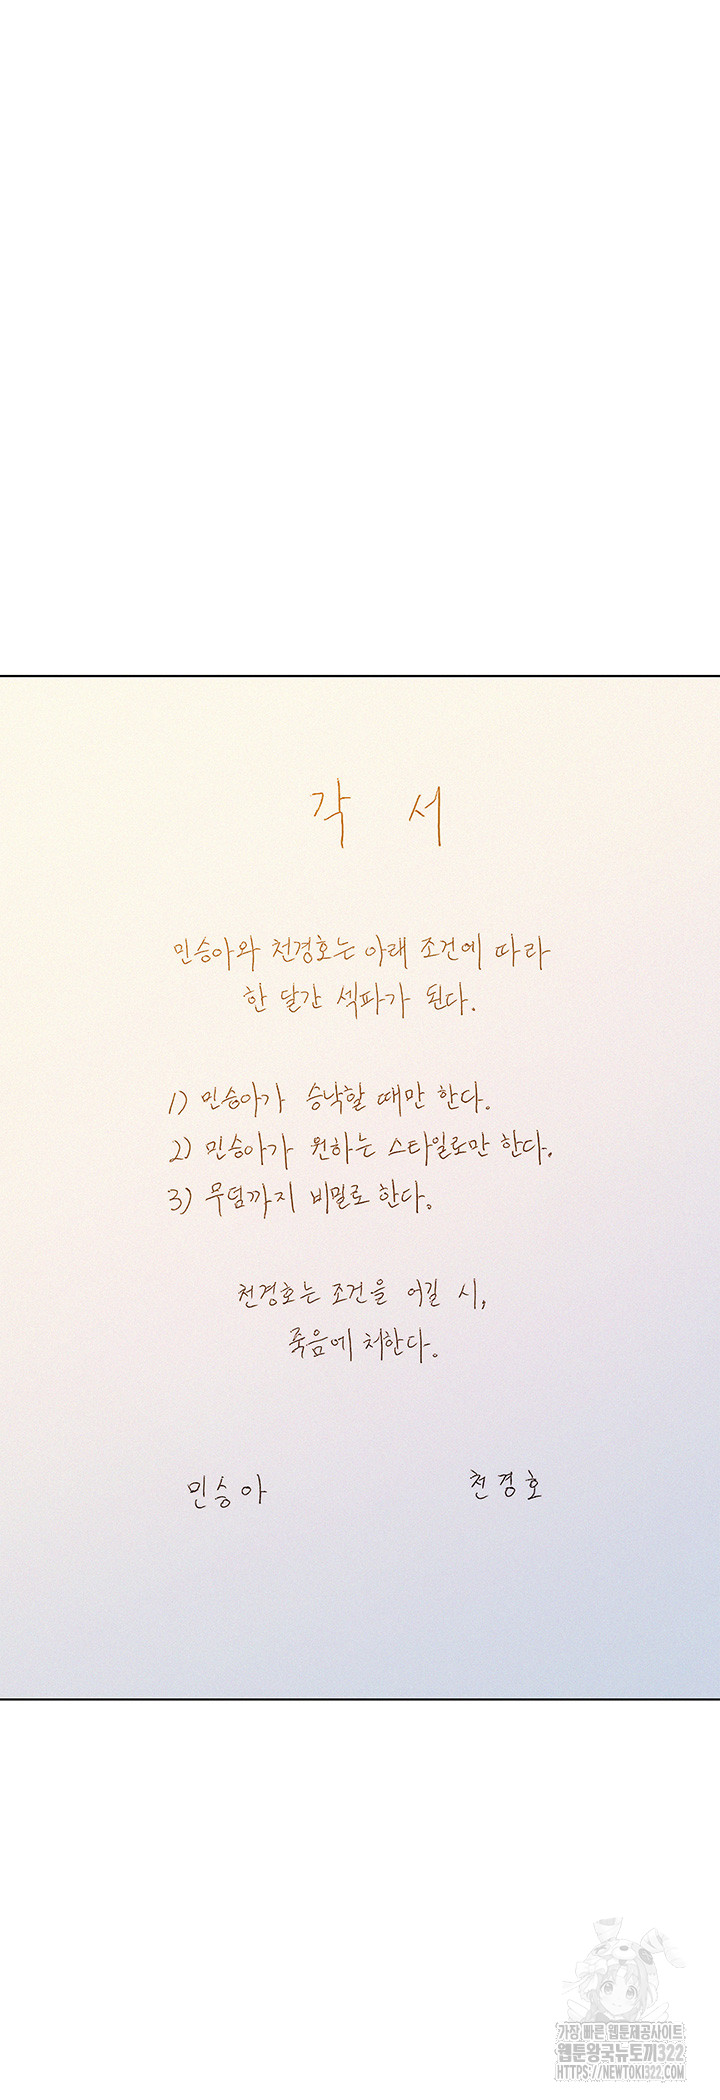 각 서
민승아와 천경호는 아래 조건에 따라
한 달간 섹파가 된다.
1) 민승아가 승낙할 때만 한다.
2) 민승아가 원하는 스타일로만 한다.
3) 무덤까지 비밀로 한다.
천경호는 조건을 어길 시,
죽음에 처한다.
민승아 천경호
가장 빠른 웹툰제공사이트
웹툰왕국뉴토끼322
HTTPS://NEWTOKI322.COM